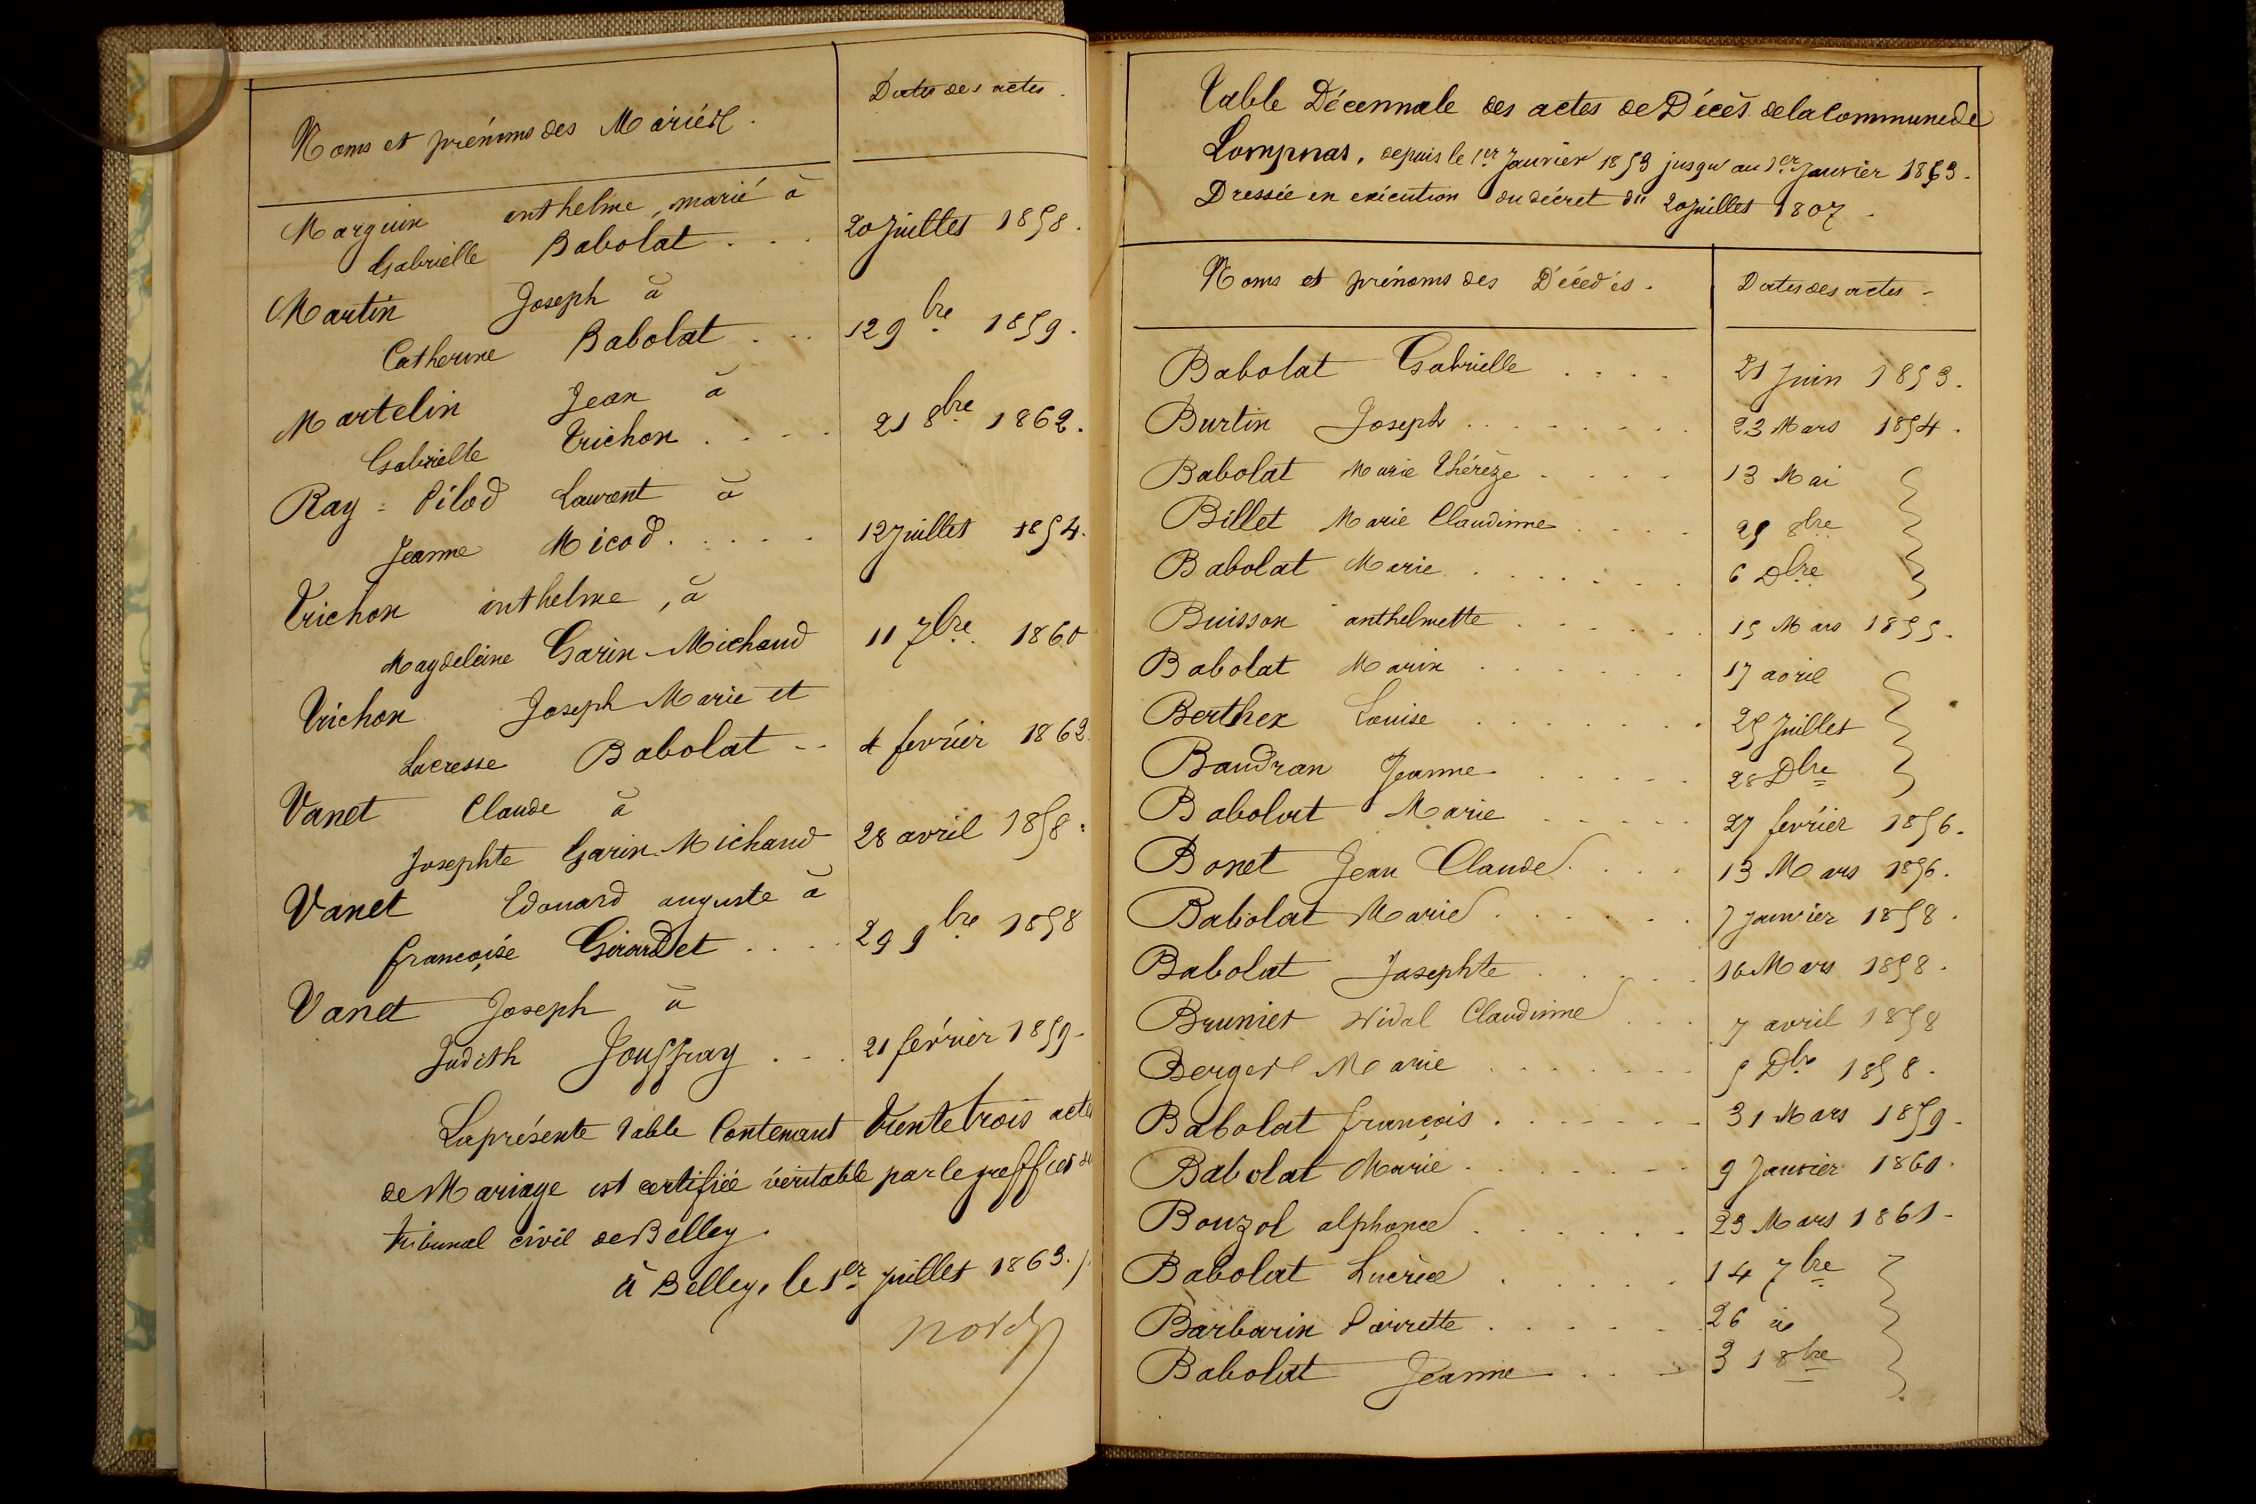 Noms et prénoms des Mariés.
Dates des actes.
Marguin anthelme, marié à
Gabrielle Babolat . . . 20 juillet 1858.
Martin Joseph à
Catherine Babolat . . . 12 9bre 1859.
Martelin Jean à
Gabrielle Trichon . . . . 21 8bre 1862.
Ray = Pilod Laurent à
Jeanne Micod . . . . . 12 juillet 1854.
Trichon anthelme, à
Magdeleine Garin-Michaud 11 7bre 1860
Trichon Joseph Marie et
Lucresse Babolat - - 4 fevrier 1862.
Vanet Claude à
Josephte Garin-Michaud 28 avril 1858.
Vanet Edouard auguste à
françoise Girardet . . . . 29 9bre 1858
Vanet Joseph à
Judith Jouffray . . . 21 février 1859-
La présente Table Contenant Trente trois actes
de Mariage est certifiée véritable par le greffier du
tribunal civil de Belley.
à Belley, le 1er Juillet 1863.
Table Décennale des actes de Décès de la Commune de
Lompnas, depuis le 1er Janvier 1853 jusqu'au 1er Janvier 1863.
Dressée en exécution du décret du 20 juillet 1807.
Noms et prénoms des Décédés.
Dates des actes -
Babolat Gabrielle . . . . 21 Juin 1853.
Burtin Joseph . . . . . . . . 23 Mars 1854.
Babolat Marie Thérèze . . . . 13 Mai
Billet Marie Claudinne . . . . 25 8bre
Babolat Marie . . . . . . . 6 Dbre
Buisson anthelmette . . . . . . 15 Mars 1855.
Babolat Marin . . . . . . 17 avril
Berther Louise . . . . . . . . 25 Juillet
Baudran Jeanne . . . . . 28 Dbre
Babolat Marie . . . . . 27 février 1856.
Bonet Jean Claude . . . . 13 Mars 1856.
Babolat Marie . . . . . . 7 janvier 1858.
Babolat Josephte . . . . . 16 Mars 1858.
Brunier Vidal Claudinne . . . 7 avril 1858
Berger Marie . . . . . . . . 5 Dbre 1858.
Babolat françois . . . . . . . 31 Mars 1859.
Babolat Marie . . . . . . . 9 Janvier 1860.
Bouzol alphonce . . . . . . 23 Mars 1861-
Babolat Lucrèce . . . . . 14 7bre
Barbarin Pierrette . . . . . . 26 id
Babolat Jeanne . . . 31 8bre